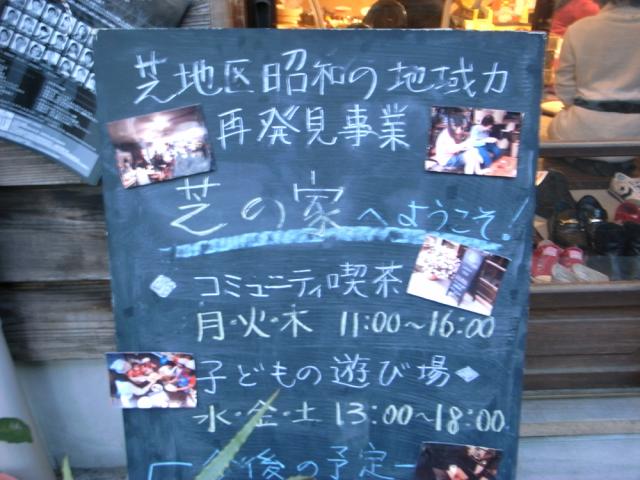 芝地区昭和の地域力
再発見事業
芝の家へようこそ!
◆コミュニティ喫茶
月・火・木 11:00~16:00
子どもの遊び場◆
水・金・土 13:00~18:00
今後の予定